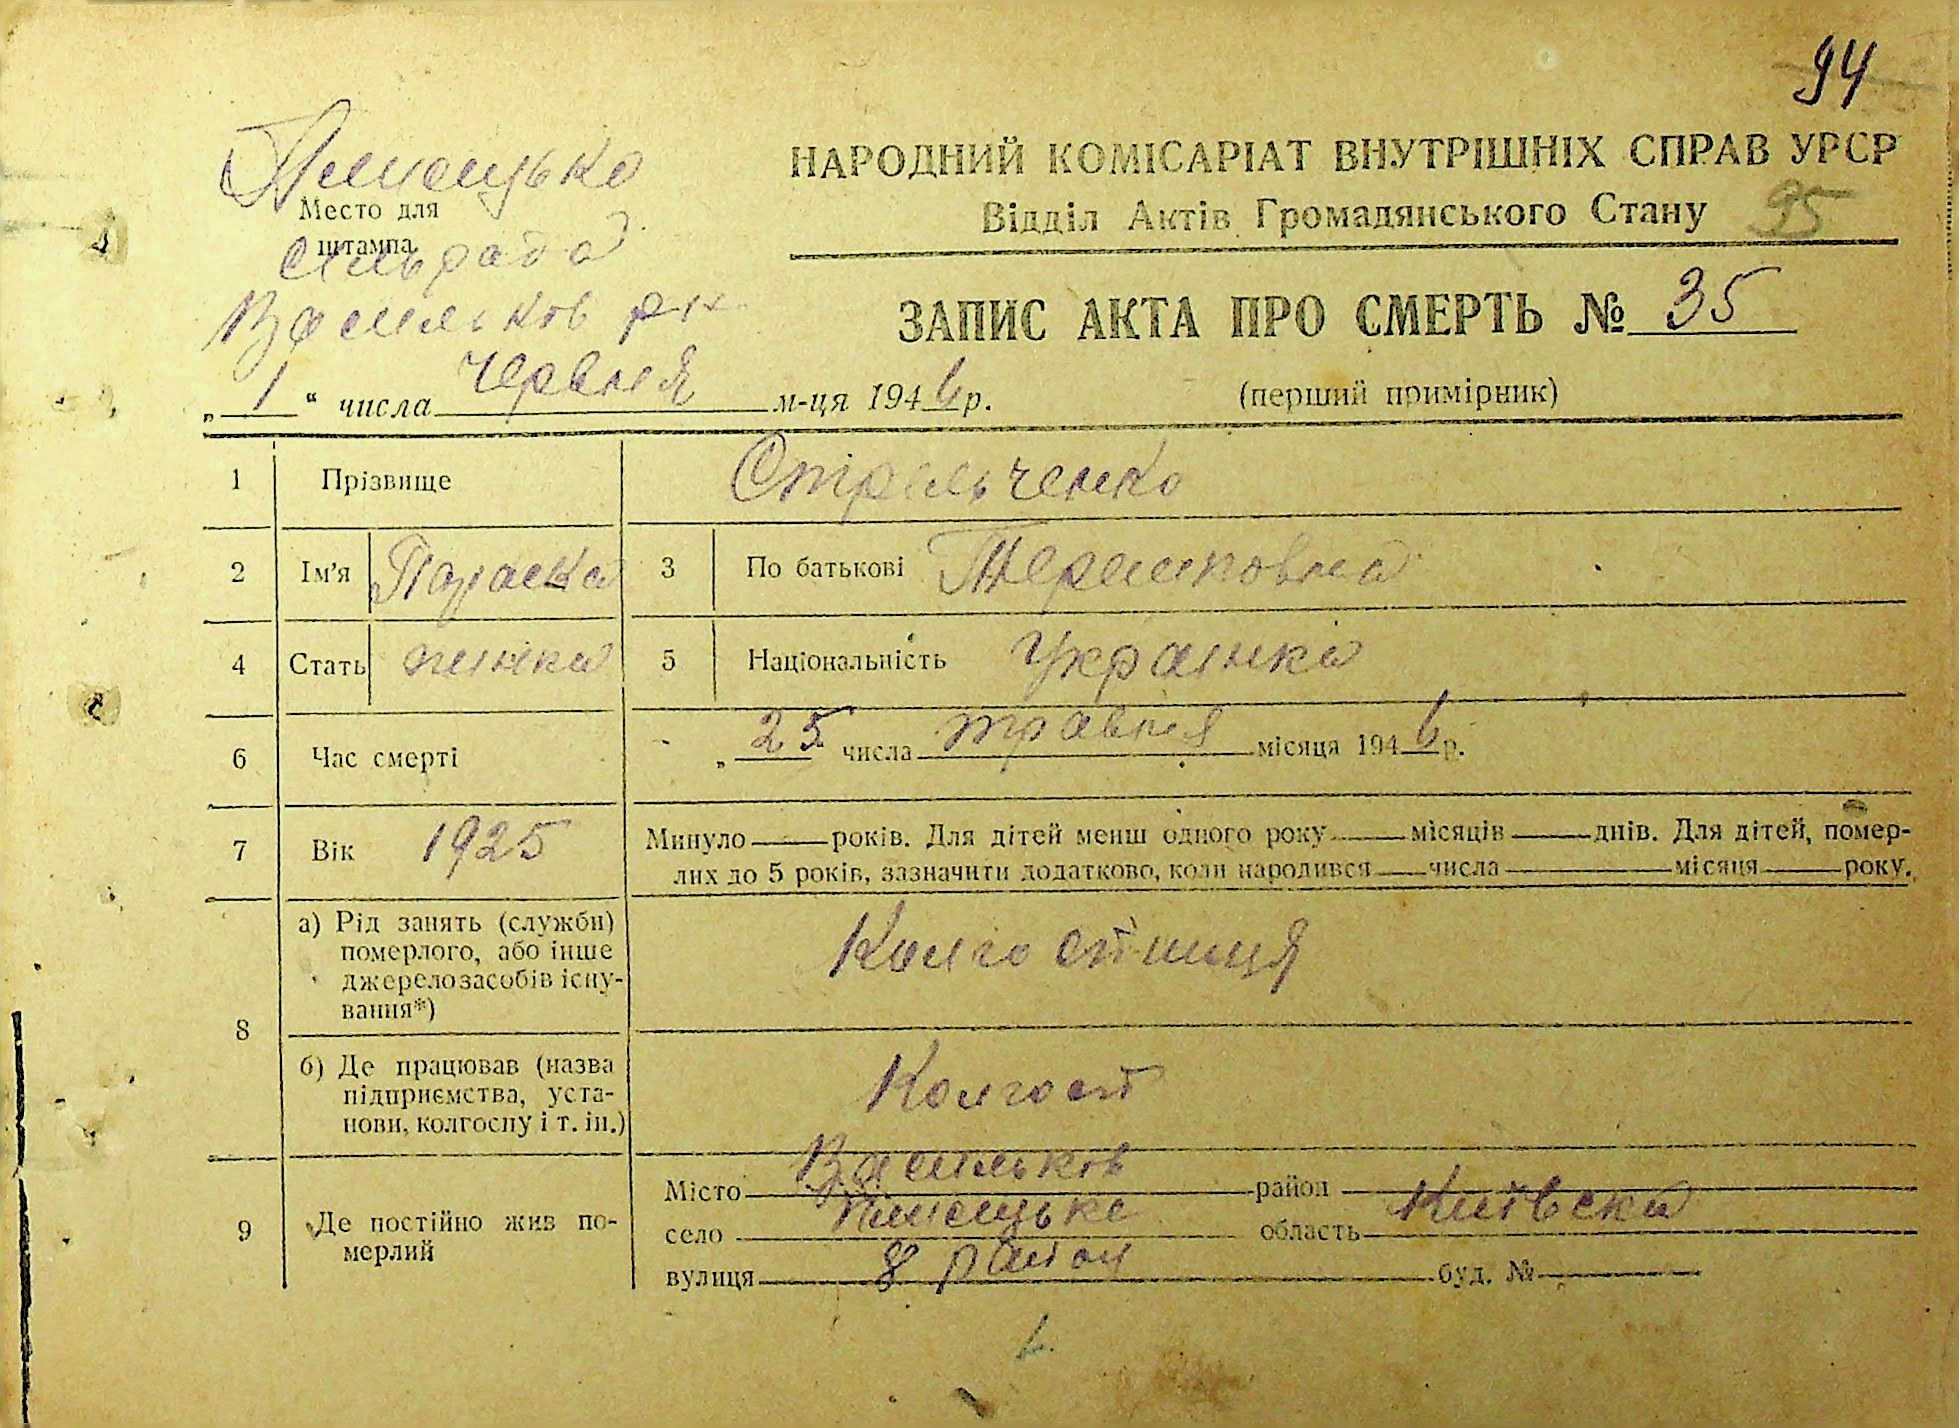 94
НАРОДНИЙ КОМІСАРІАТ ВНУТРІШНІХ СПРАВ УРСР
Відділ Актів Громадянського Стану 95
Место для
штампа
сільрада
Васильков р-н
ЗАПИС АКТА ПРО СМЕРТЬ № 35
„ 1 “ числа червня м-ця 1946 р.
(перший примірник)
1 Прізвище Стрельченко
2 Ім'я Параска 3 По батькові
4 Стать жінка 5 Національність Українка
6 Час смерті „ 25 числа травня місяця 1946 р.
7 Вік 1925 Минуло років. Для дітей менш одного року місяців днів. Для дітей, помер-
лих до 5 років, зазначити додатково, коли народився числа місяця року.
8 а) Рід занять (служби)
померлого, або інше
джерело засобів існу-
вання*)
Колгостниця
б) Де працював (назва
підприємства, уста-
нови, колгоспу і т. ін.)
Колгост
9 Де постійно жив по-
мерлий
Місто Васильков район
село область Київска
вулиця 8 район буд. №